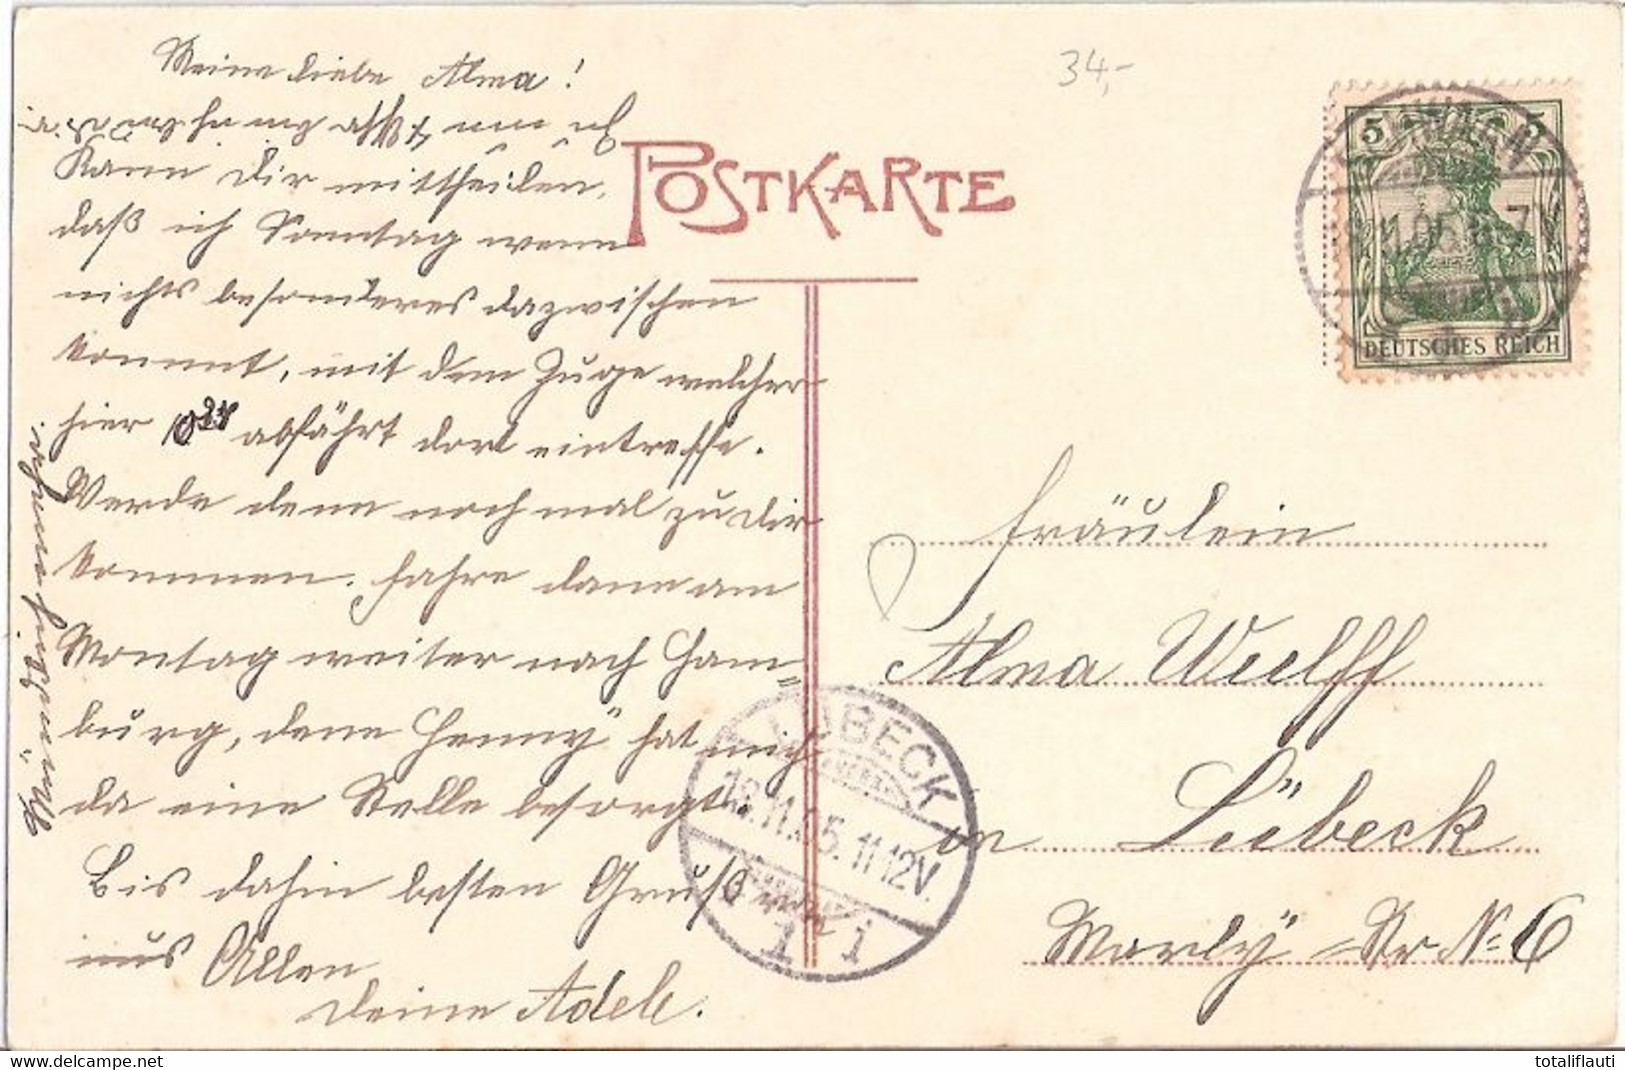 Meine liebe Alma!
Kann Dir mittheilen,
daß ich Sonntag wenn
nichts besonderes dazwischen
kommt, mit dem Zuge welcher
hier abfährt dort eintreffe.
Werde denn noch mal zu Dir
kommen. Fahre dann am
Montag weiter nach Ham-
burg, denn Henny hat mich
da eine Stelle besorgt.
Bis dahin besten Gruß
aus Allen
Deine Adele.
34,-
POSTKARTE
5 5
DEUTSCHES REICH
LÜBECK
18.11.05. 11-12V.
1 i
Fräulein
Alma Wulff
in Lübeck
Marly Str No 6
totaliflauti